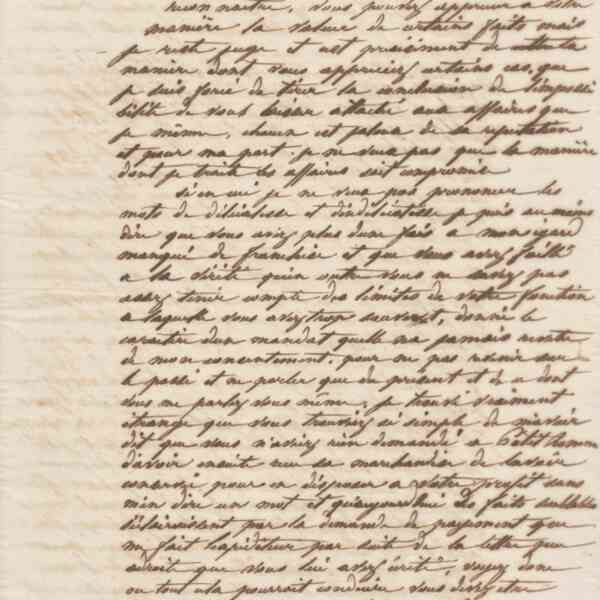 reconnaitre, vous pouvez apprécier a votre
manière la valeur de certains faits mais
je reste juge et est precisement de
manière dont vous appreciez certains cas, que
je suis forcé de tirer la conclusion de l'impossi
bilité de vous laisser attaché aux affaires que
je même, chacun est jaloux de sa reputation
et pour ma part, je ne veux pas que la manière
dont je traite les affaires soit compromise
si en ici je ne veux pas prononcer les
mots de délicatesse et d'indélicatesse je puis au moins
dire que vous avez plus d'une fois a mon egard
manqué de franchise et que vous avez failli
a la vérité qu'en outre vous ne savez pas
assez tenir compte des limites de votre fonction
a laquelle vous avez trop souvent, donné le
caractère d'un mandat quelle n'a jamais
de mon consentement. pour ne pas revenir sur
le passé et ne parler que du present et de ce dont
vous me parlez vous même, je trouve vraiment
étrange que vous trouviez si simple de m'avoir
dit que vous n'aviez rien demandé a
d'avoir ensuite sur sa marchandise de
conservé pour en disposer a votre profit sans
m'en dire un mot et qu'aujourd'hui les faits
s'éclaircissent par la demande de payement que
me fait par suite de la lettre que
que vous lui avez écrite, voyez donc
ou tout cela pourrait conduire vous devez etre